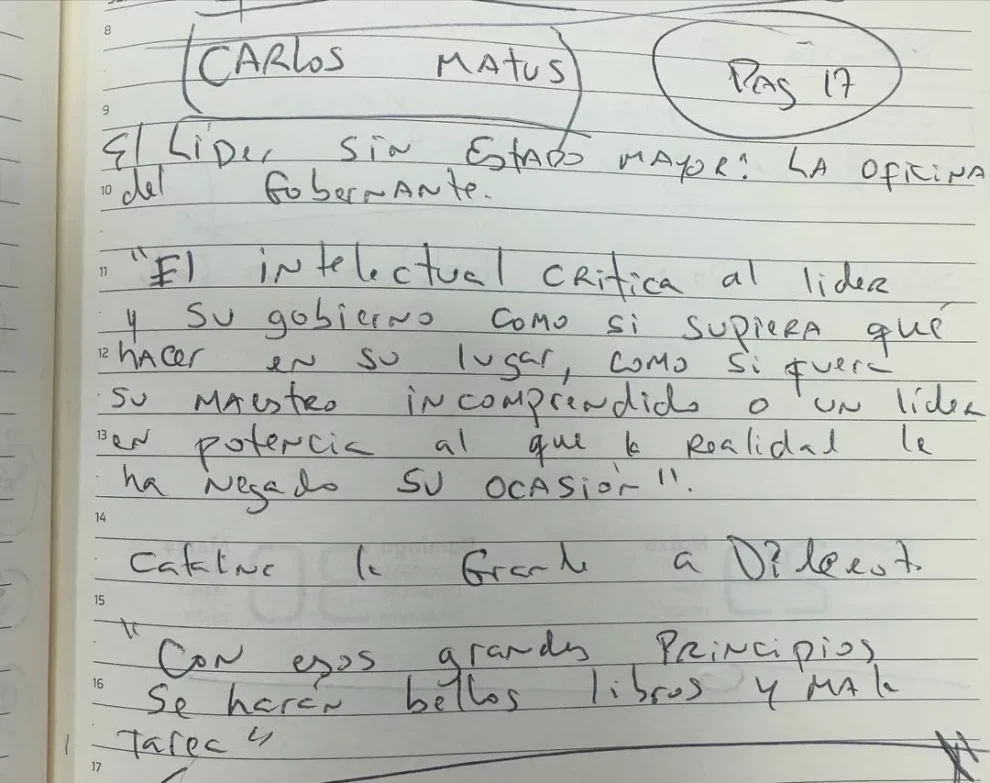 8
CARLOS MATUS
Pag 17
9
El Líder sin Estado Mayor: La Oficina
10 del Gobernante.
11 "El intelectual critica al lider
y su gobierno como si supiera qué
12 hacer en su lugar, como si fuera
su maestro incomprendido o un líder
13 en potencia al que la realidad le
ha negado su ocasión".
14
Catalina la Grande a Diderot.
15
"Con esos grandes Principios
16 se harán bellos libros y mala
Tarea"
17